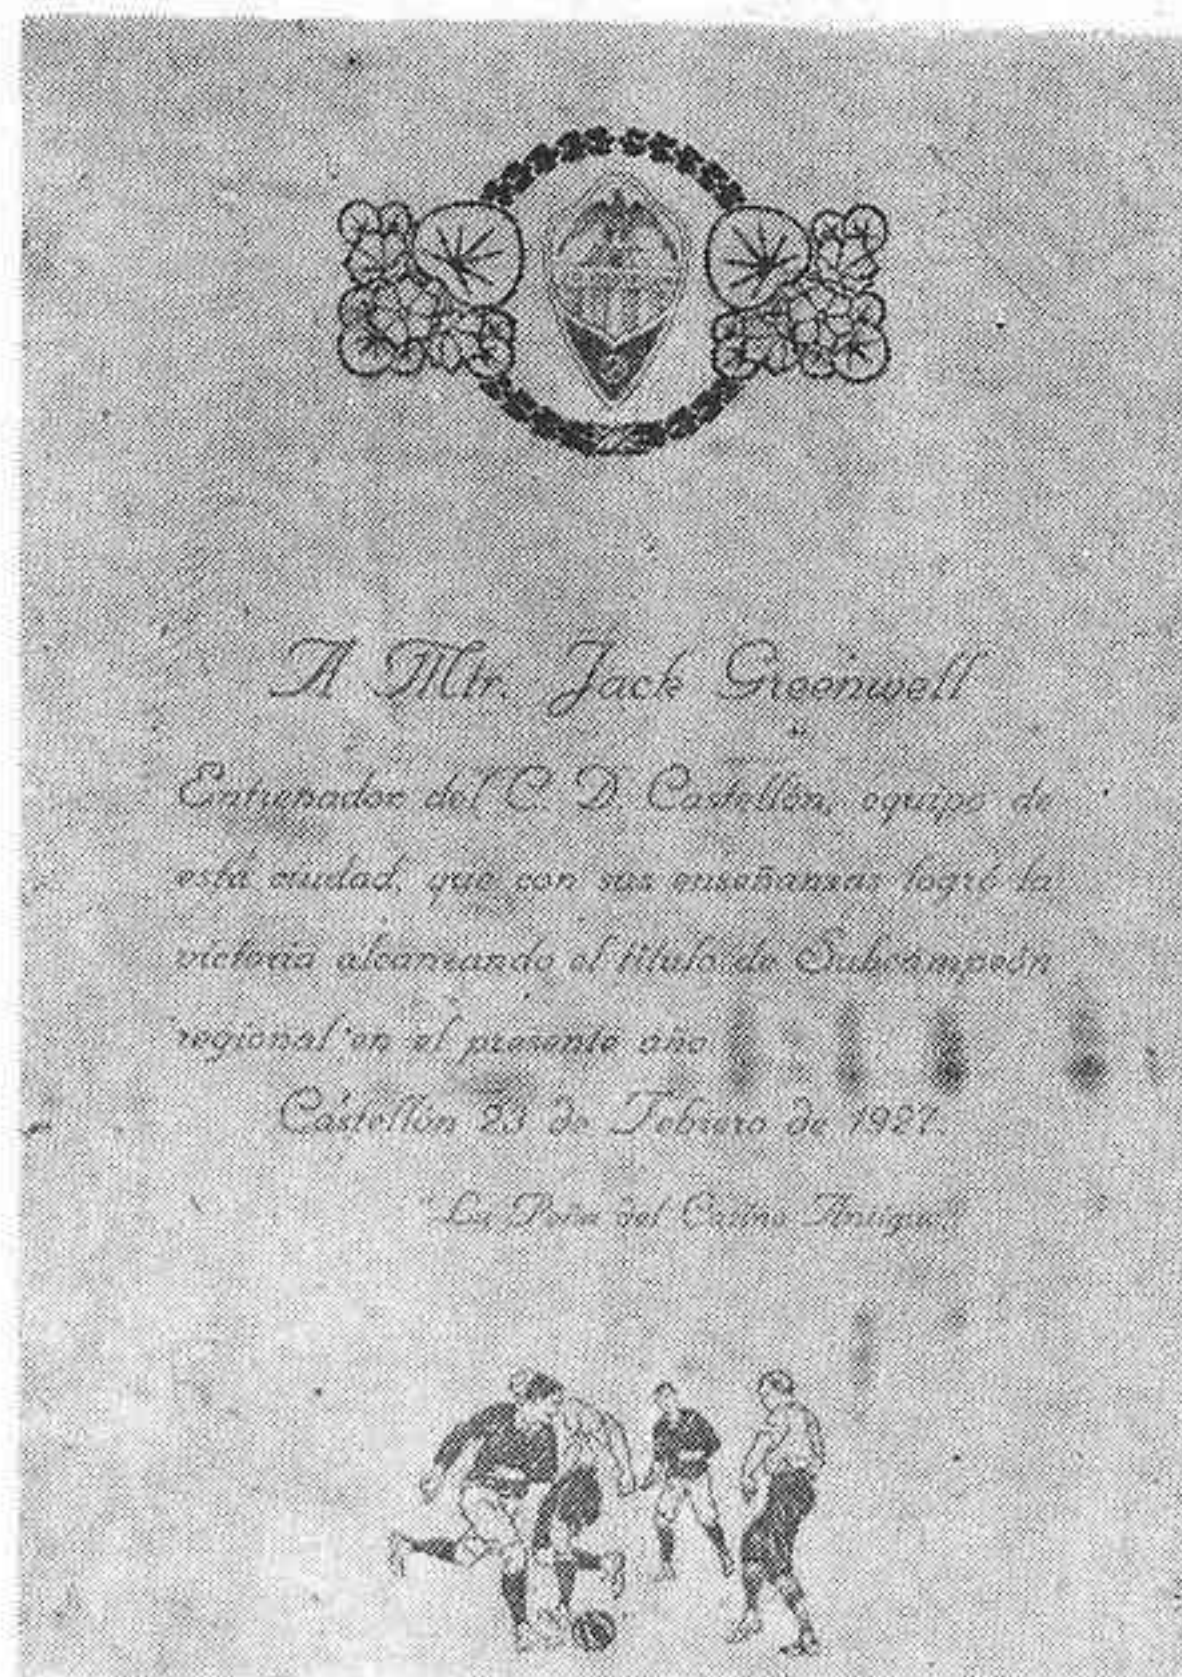 A Mtr. Jack Greenwell
Entrenador del C. D. Castellón, equipo de
esta ciudad, que con sus enseñanzas logró la
victoria alcanzando el título de Subcampeón
regional en el presente año
Castellón 23 de Febrero de 1927.
"La Peña del Casino Antiguo"